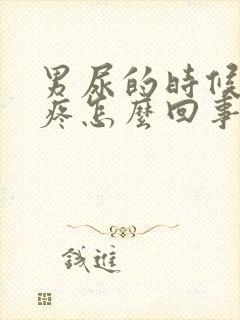 男尿的時候
疼怎麼回事
錢進